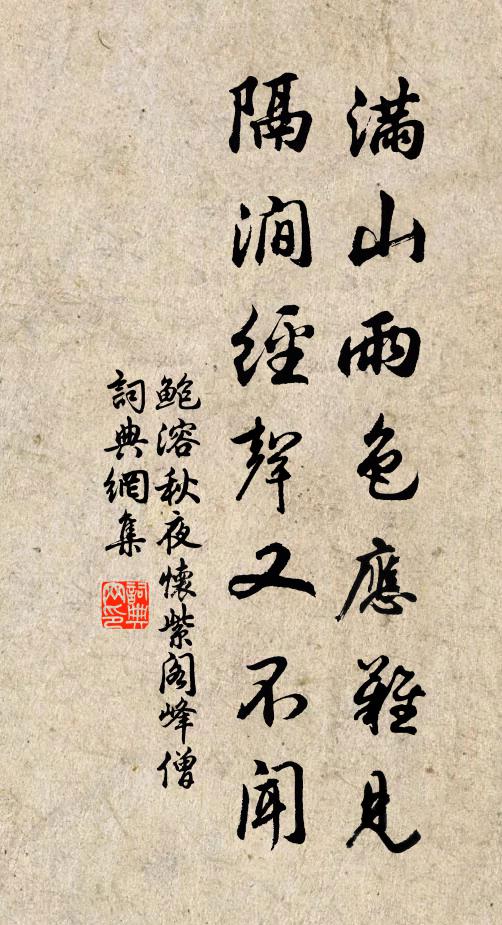 滿山雨色應難見
隔澗經聲又不聞
鮑溶秋夜懷紫阁峰僧
詞典網集
詞典
网印